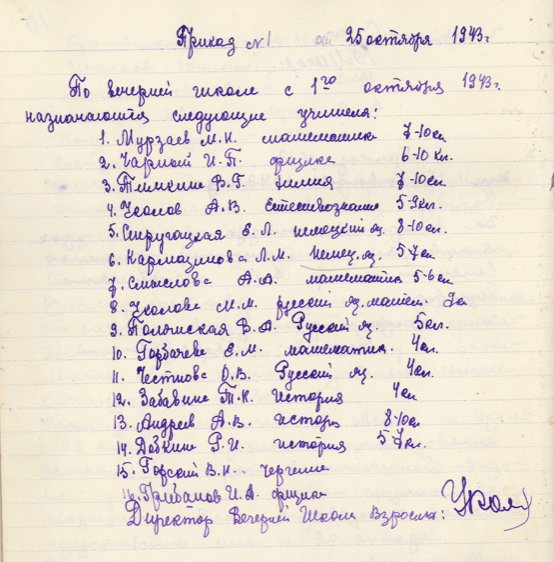 Приказ №1 от 25 октября 1943 г.
По вечерней школе с 1го октября 1943 г.
назначаются следующие учителя:
1. Мурзаев М.К. математика 7-10 кл.
2. Чарный И.П. физика 6-10 кл.
3. В.Г. химия 7-10 кл.
4. Уколов А.В. Естествознание 5-9 кл.
5. Стругацкая Е.Л. немецкий яз. 8-10 кл.
6. Кармазинова Л.М. немец. яз. 5-7 кл.
7. Смыслова А.А. математика 5-6 кл.
8. Уколова М.М. русский яз. матем. кл.
9. Полонская В.А. Русский яз. 5 кл.
10. Горбачева Е.М. математика. 4 кл.
11. Честнова О.В. Русский яз. 4 кл.
12. Забавина Т.К. история 4 кл
13. Андреев А.В. история 8-10 кл
14. Добкина Р.И. история 5-7 кл.
15. Горский В.Н. черчение
16. Грибанов И.А. физика
Директор Вечерней Школы Взрослых: Укол